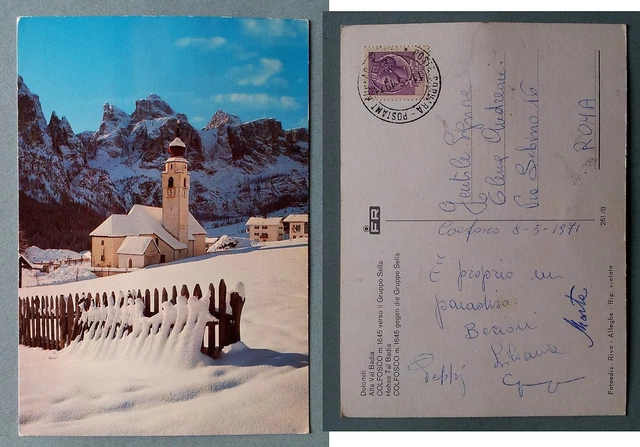 Dolomiti
Alta Val Badia
COLFOSCO m 1645 verso il Gruppo Sella
Hohes Tal Badia
COLFOSCO m 1645 gegen die Gruppe Sella
FR
261/B
Fotoediz. Rivo - Alleghe - Rip. vietata
Gentile Sig.na
Elena
Via Sabino 16
ROMA
Colfosco 8-3-1971
E' proprio un
paradiso.
Bacioni
Liliana
Marta
Peppi